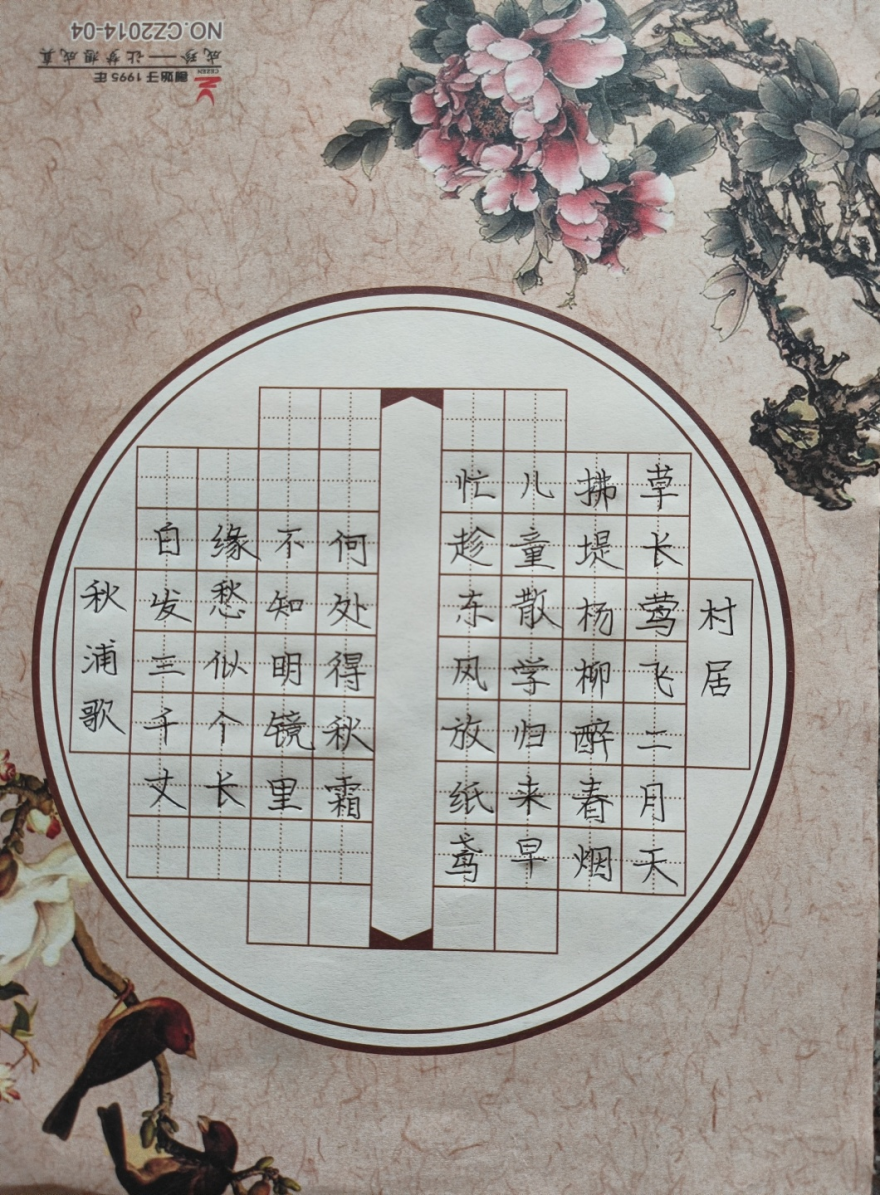 村居
草长莺飞二月天
拂堤杨柳醉春烟
儿童散学归来早
忙趁东风放纸鸢
何处得秋霜
不知明镜里
缘愁似个长
白发三千丈
秋浦歌
創始于1995年
CZZEN
成珍——让梦想成真
NO.CZ2014-04